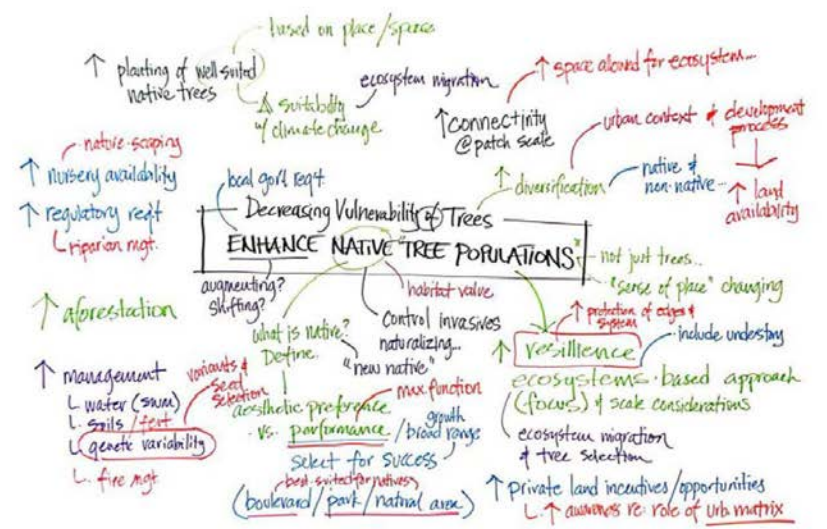 based on place/space
↑ planting of well suited
native trees
Δ suitability
w/ climate change
ecosystem migration
↑ space allowed for ecosystem...
↑ connectivity
@ patch scale
urban context & development
process
↑ land
availability
nature-scaping
↑ nursery availability
↑ regulatory req't
riparian mgt.
local gov't req't
↑ diversification
native &
non-native...
Decreasing Vulnerability of Trees
ENHANCE NATIVE "TREE POPULATIONS"
not just trees...
"sense of place" changing
augmenting?
shifting?
habitat value
↑ aforestation
what is native?
Define.
control invasives
naturalizing...
"new native"
↑ protection of edges &
system
↑ resillience
include understory
ecosystems-based approach
(focus) & scale considerations
ecosystem migration
& tree selection
↑ management
water (swm)
soils / fert
genetic variability
fire mgt
variants &
seed
selection
aesthetic preference
vs. performance / growth
broad range
max function
select for success
best suited for natives
(boulevard / park / natural area)
↑ private land incentives/opportunities
↑ awareness re: role of urb matrix